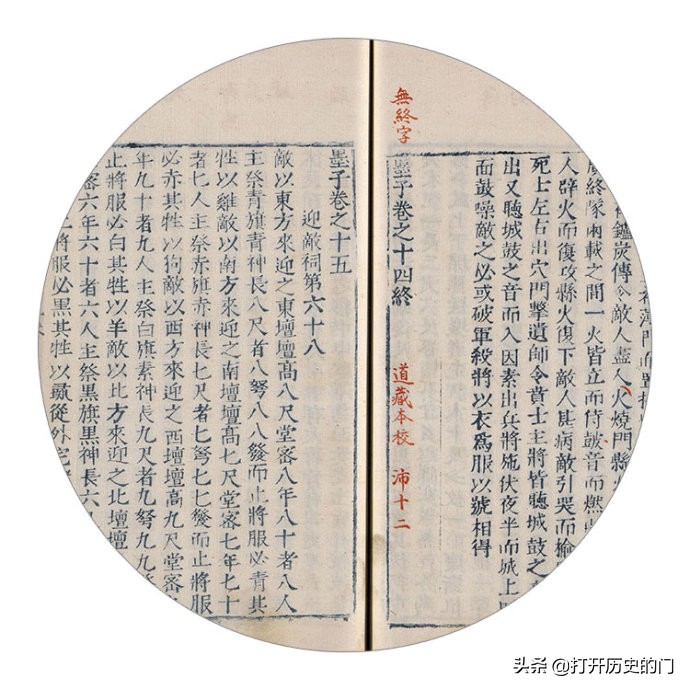 薄門而置
鑪炭傳令敵人盡入火燒門縣
廣終隊兩載之間一火皆立而侍鼓音而燃
人辟火而復攻縣火復下敵人甚病敵引哭而榆
死士左右出穴門擊遺師令賁士主將皆聽城鼓之
出又聽城鼓之音而入因素出兵將施伏夜半而城上
面鼓噪敵之必或破軍殺將以衣爲服以號相得
無終字
墨子卷之十四終
道藏本校 沛十二
墨子卷之十五
迎敵祠第六十八
敵以東方來迎之東壇壇高八尺堂密八年八十者八人
主祭青旗青神長八尺者八弩八八發而止將服必青其
牲以雞敵以南方來迎之南壇壇高七尺堂密七年七十
者七人主祭赤旗赤神長七尺者七弩七七發而止將服
必赤其牲以狗敵以西方來迎之西壇壇高九尺堂密
年九十者九人主祭白旗素神長九尺者九弩九九
止將服必白其牲以羊敵以北方來迎之北壇壇
密六年六十者六人主祭黑旗黑神長六
止將服必黑其牲以彘從外宅
头条 @打开历史的门